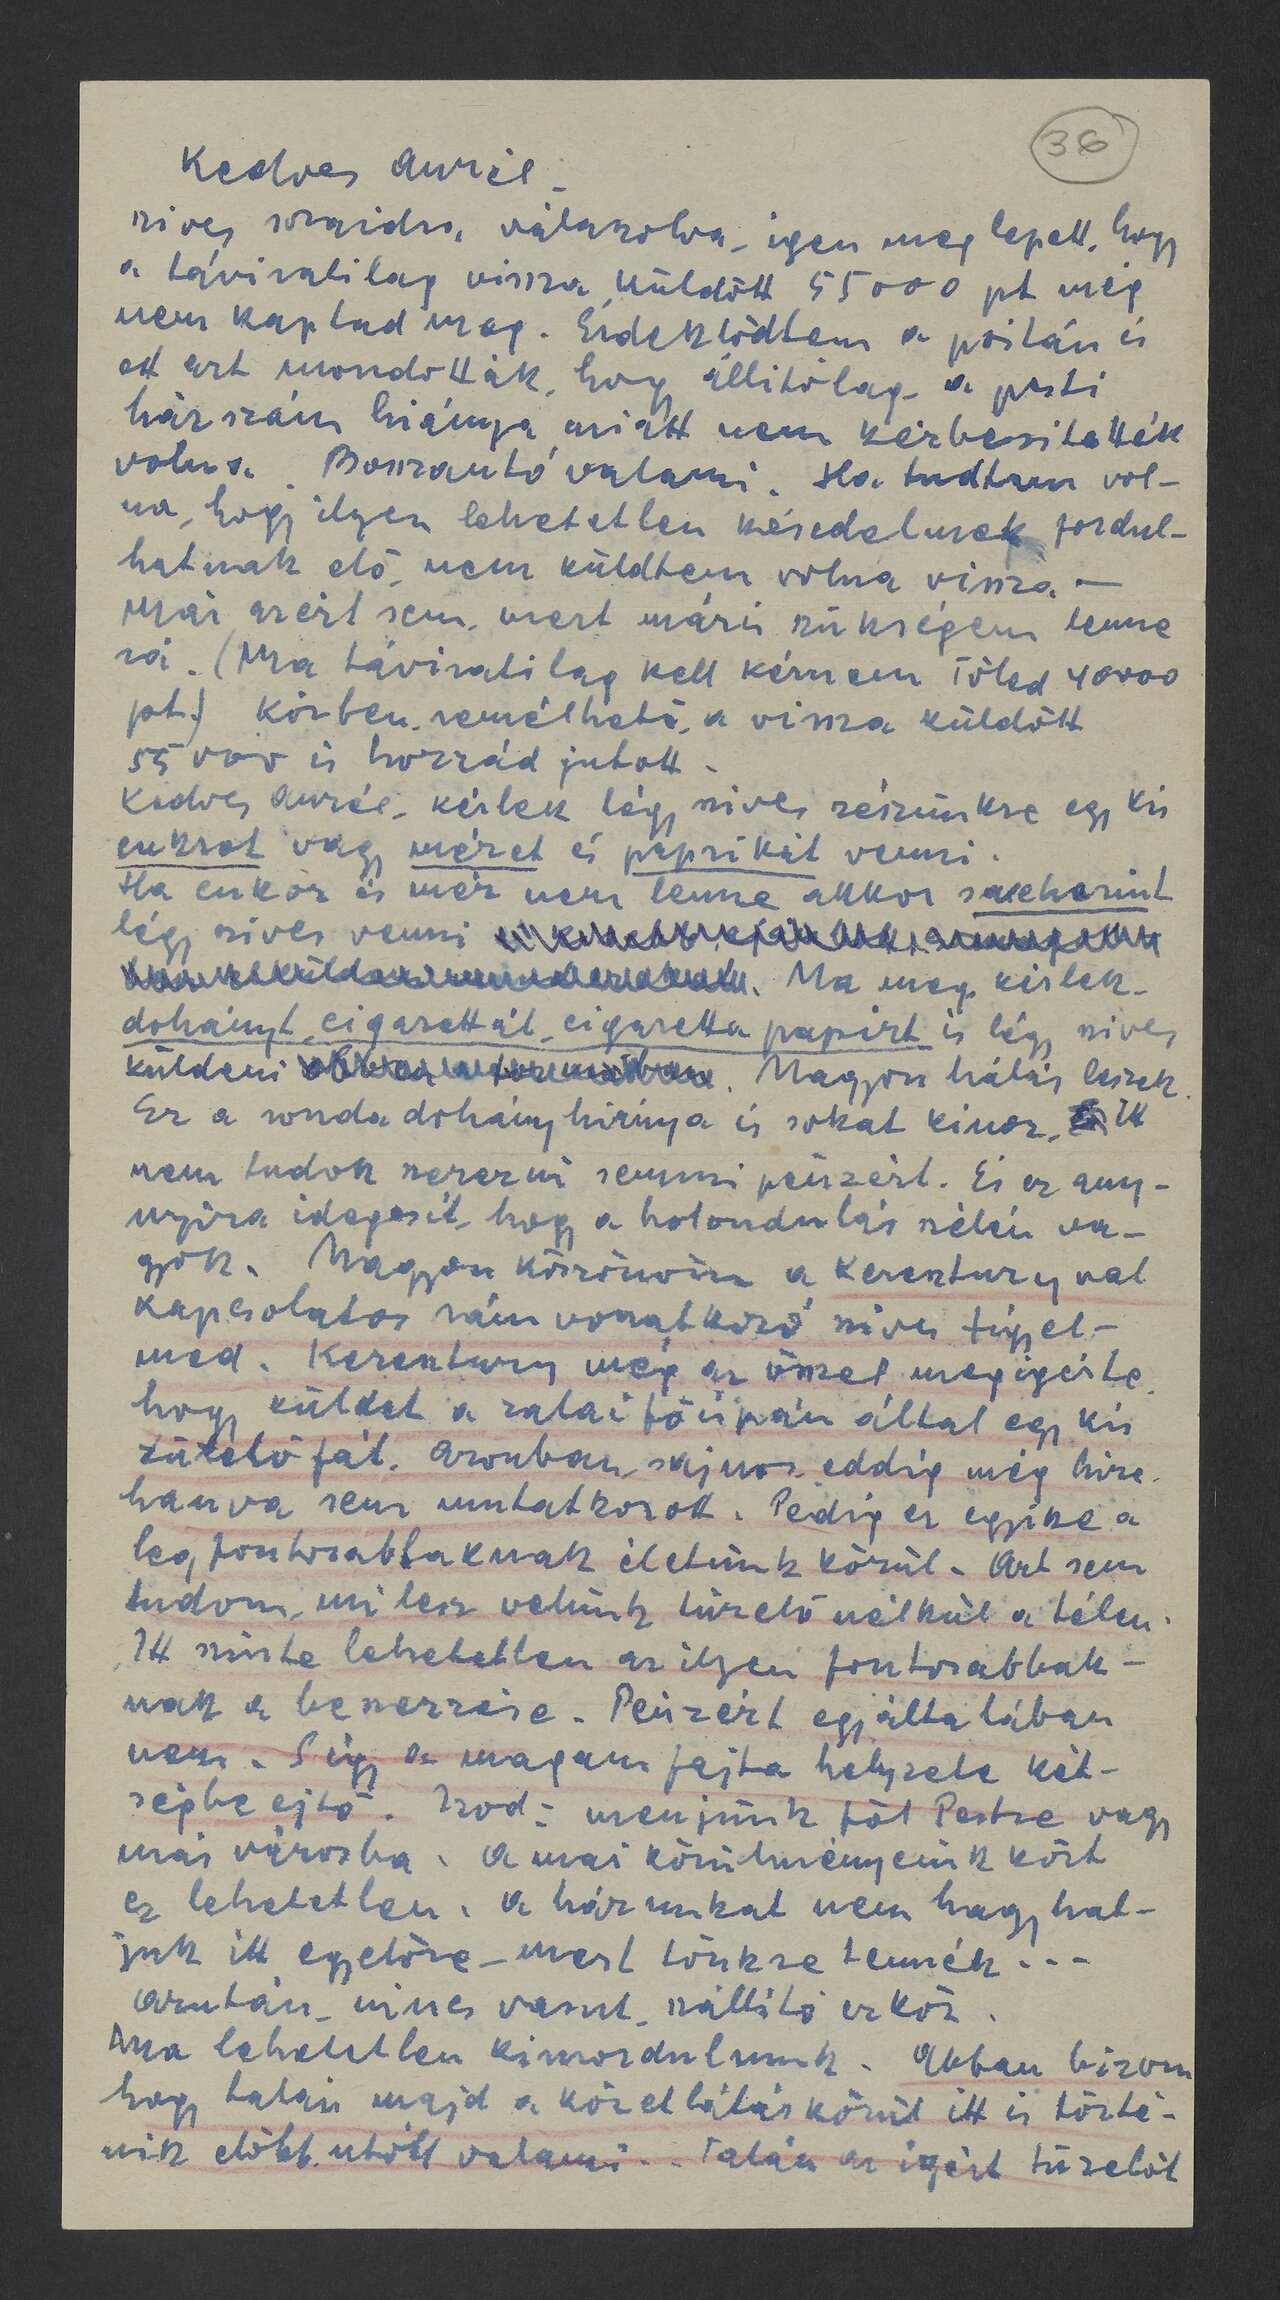 36
Kedves Aurél,
szives soraidra válaszolva, igen meg lepett, hogy
a táviratilag vissza küldött 55000 pt még
nem kaptad meg. Érdeklődtem a postán és
ott azt mondották, hogy állitólag a pesti
házszám hiánya miatt nem kézbesitették
volna. Bosszantó valami. Ha tudtam vol-
na, hogy ilyen lehetetlen késedelmek fordul-
hatnak elő, nem küldtem volna vissza. —
Már azért sem, mert máris szükségem lenne
rá. (Ma táviratilag kell kérnem Tőled 40000
pt.) Közben, remélhető, a vissza küldött
55000 is hozzád jutott.
Kedves Aurél, kérlek légy szives részünkre egy kis
cukrot vagy mézet és paprikát venni.
Ha cukor és méz nem lenne akkor saccharint
légy szives venni
. Ma meg kérlek
dohányt, cigarettát, cigaretta papirt is légy szives
küldeni . Nagyon hálás leszek.
Ez a ronda dohány hiánya is sokat kinoz. Itt
nem tudok szerezni semmi pénzért. És ez any-
nyira idegesít, hogy a bolondulás szélén va-
gyok. Nagyon köszönöm a Kereszturyval
kapcsolatos rám vonatkozó szives figyel-
med. Keresztury még az ősszel megigérte,
hogy küldet a zalai főispán által egy kis
tüzelő fát. Azonban, sajnos eddig még hire-
hamva sem mutatkozott. Pedig ez egyike a
legfontosabbaknak életünk körül. Azt sem
tudom, mi lesz velünk tüzelő nélkül a télen.
Itt szinte lehetetlen az ilyen fontosabbak-
nak a beszerzése. Pénzért egyáltalában
nem. S igy a magam fajta helyzete két-
ségbe ejtő. Irod: menjünk föl Pestre vagy
más városba. A mai körülményeink közt
ez lehetetlen. A házunkat nem hagyhat-
juk itt egyelőre, mert tönkre tennék...
Azután, nincs vasut, szállitó eszköz.
Ma lehetetlen kimozdulnunk. Abban bizom
hogy talán majd a közellátás körül itt is törté-
nik előbb utóbb valami.. Talán az igért tüzelőt